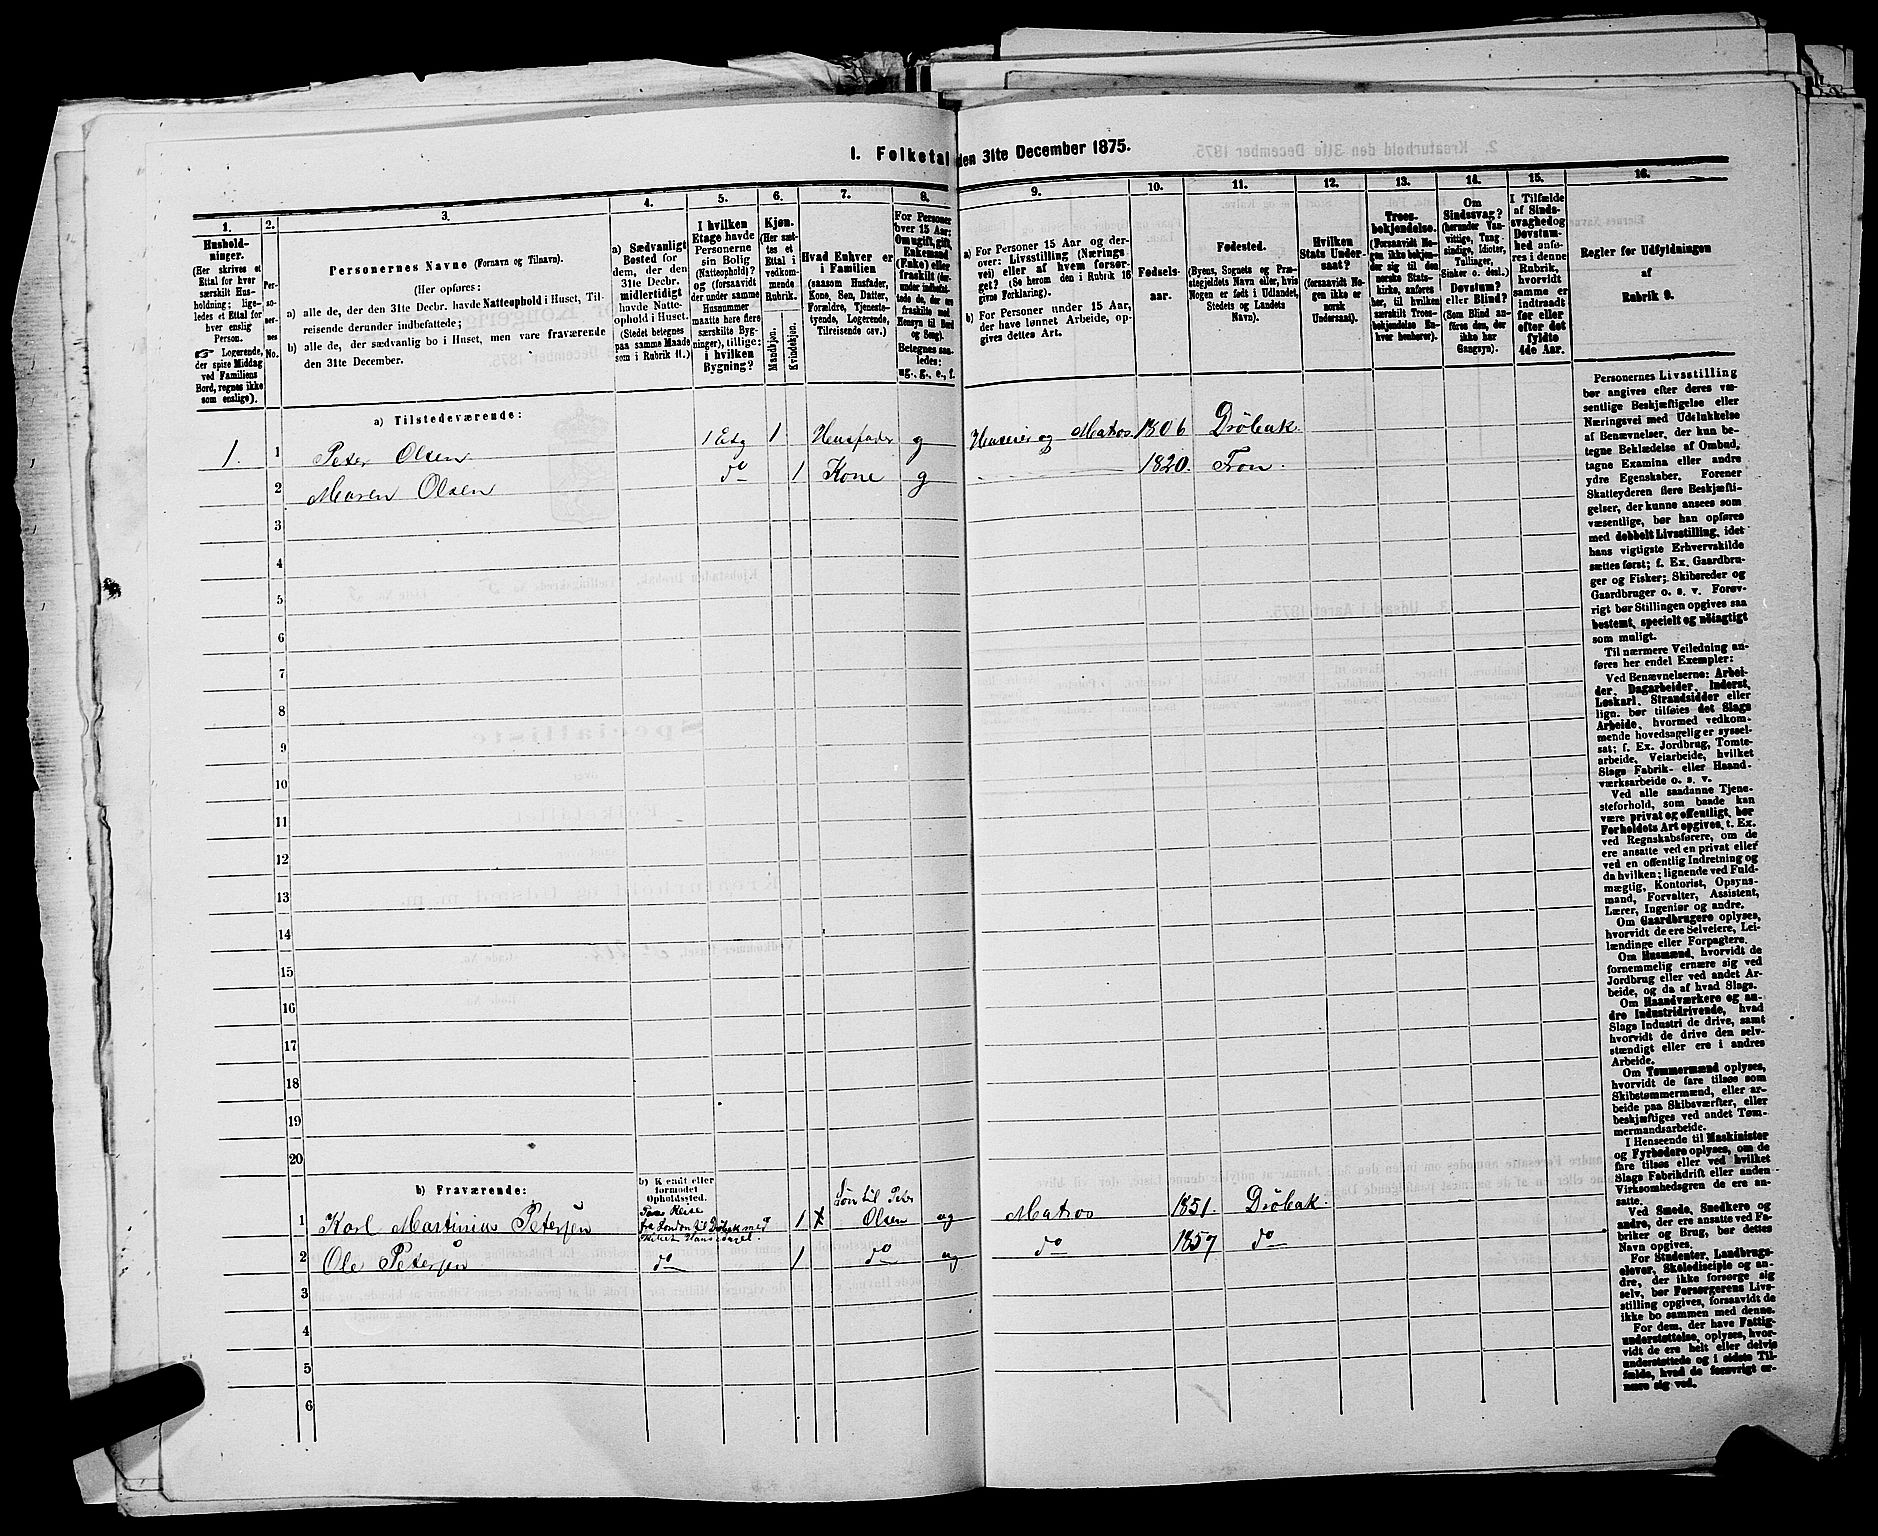 1. Folketal den 31te December 1875.
1.
2.
3.
4.
5.
6.
7.
8.
9.
10.
11.
12.
13.
14.
15.
16.
Hushold-
ninger.
(Her skrives et
Ettal for hver
særskilt Hus-
holdning; lige-
ledes et Ettal for
hver enslig
Person.
☞ Logerende,
der spise Middag
ved Familiens
Bord, regnes ikke
som enslige).
Per-
so-
ner-
nes
No.
Personernes Navne (Fornavn og Tilnavn).
(Her opføres:
a) alle de, der den 31te Decbr. havde Natteophold i Huset, Til-
reisende derunder indbefattede;
b) alle de, der sædvanlig bo i Huset, men vare fraværende
den 31te December.
a) Sædvanligt
Bosted for
dem, der den
31te Decbr.
midlertidigt
havde Natte-
ophold i Huset.
(Stedet betegnes
paa samme Maade
som i Rubrik 11.)
I hvilken
Etage havde
Personerne
sin Bolig
(Natteophold)?
og (forsaavidt
der under samme
Husnummer
maatte høre flere
særskilte Byg-
ninger), tillige:
i hvilken
Bygning?
Kjøn.
(Her sæt-
tes et
Ettal i
vedkom-
mende
Rubrik.
Mandkjøn.
Kvindekjøn.
Hvad Enhver er
i Familien
(saasom Husfader,
Kone, Søn, Datter,
Forældre, Tjeneste-
tyende, Logerende,
Tilreisende osv.)
For Personer
over 15 Aar:
Om ugift, gift,
Enkemand
(Enke) eller
fraskilt
Betegnes saa-
ledes:
ug., g., e., f.
a) For Personer 15 Aar og der-
over: Livsstilling (Nærings-
vei) eller af hvem forsør-
get? (Se herom den i Rubrik 16
givne Forklaring).
b) For Personer under 15 Aar,
der have lønnet Arbeide, op-
gives dettes Art.
Fødsels-
aar.
Fødested.
(Byens, Sognets og Præ-
stegjeldets Navn eller, hvis
Nogen er født i Udlandet,
Stedets og Landets
Navn).
Hvilken
Stats Under-
saat?
(forsaavidt No-
gen ikke er
norsk
Undersaat).
Troes-
bekjendelse.
(Forsaavidt No-
gen ikke bekjen-
der sig til den
norske Stats-
kirke, anføres
her, til hvilken
særskilt Troes-
bekjendelse En-
hver henhører).
Om
Sindssvag?
(herunder Van-
vittige, Tung-
sindige, Idioter,
Tullinger,
Sinker o. desl.)
Døvstum?
eller Blind? (Som
Blind an-
føres den, der
ikke har
Gangsyn).
I Tilfælde
af Sinds-
svaghed og
Døvstum-
hed anfø-
res i denne
Rubrik,
hvorvidt
samme er
indtraadt
før eller
efter det
fyldte
4de Aar.
Regler for Udfyldningen
af
Rubrik 9.
a) Tilstedeværende:
1. 1 Peter Olsen 1 Etg 1 Husfader g Huseier og Matros 1806 Dröbak.
2 Maren Olsen do 1 Kone g 1820. Fron.
3
4
5
6
7
8
9
10
11
12
13
14
15
16
17
18
19
20
b) Fraværende:
b) Kjendt eller
formodet
Opholdssted.
1 Karl Martinius Petersen Paa Reise fra London til Dröbak med 1 Sön til Peter Olsen ug Matros 1851 Dröbak
2 Ole Petersen do 1 do ug do 1857 do
3
4
5
6
Personernes Livsstilling
bør angives efter deres væ-
sentlige Beskjæftigelse eller
Næringsvei med Udelukkelse
af Benævnelser, der kun be-
tegne Beklædelse af Ombud,
tagne Examina eller andre
ydre Egenskaber. Forener
Skatteyderen flere Beskjæfti-
gelser, der kunne ansees som
væsentlige, bør han opføres
med dobbelt Livsstilling, idet
hans vigtigste Erhvervskilde
sættes først; f. Ex. Gaardbru-
ger og Fisker; Skibsreder og
Gaardbruger o. s. v. Forøv-
rigt bør Stillingen opgives saa
bestemt, specielt og nøiagtigt
som muligt.
Til nærmere Veiledning an-
føres her endel Exempler:
Ved Benævnelserne: Arbei-
der, Dagarbeider, Inderst,
Løskarl, Strandsidder eller
lign. bør tilføies det Slags
Arbeide, hvormed vedkom-
mende hovedsagelig er syssel-
sat; f. Ex. Jordbrug, Tomte-
arbeide, Veiarbeide, hvilket
Slags Fabrik- eller Haand-
værksarbeide o. s. v.
Ved alle saadanne Tjene-
steforhold, som baade kan
være privat og offentligt, bør
Forholdets Art opgives, t. Ex.
ved Regnskabsførere, om de
ere ansatte ved en privat eller
ved en offentlig Indretning og
da hvilken; lignende ved Fuld-
mægtig, Kontorist, Opsyns-
mand, Forvalter, Assistent,
Lærer, Ingeniør og andre.
Om Gaardbrugere oplyses,
hvorvidt de ere Selveiere, Lei-
lændinge eller Forpagtere.
Om Husmænd, hvorvidt de
fornemmelig ernære sig ved
Jordbrug eller ved andet Ar-
beide, og da af hvad Slags.
Om Haandværkere og an-
dre Industridrivende, hvad
Slags Industri de drive, samt
hvorvidt de drive den selv-
stændigt eller ere i andres
Arbeide.
Om Tømmermænd oplyses,
hvorvidt de fare tilsøs som
Skibstømmermænd, eller ar-
beide paa Skibsværfter, eller
beskjæftiges ved andet Tøm-
mermandsarbeide.
I Henseende til Maskinister
og Fyrbødere oplyses, om de
fare tilsøs eller ved hvilket
Slags Fabrikdrift eller anden
Virksomhedsgren de ere an-
satte.
Ved Smede, Snedkere og
andre, der ere ansatte ved Fa-
briker og Brug, bør dettes
Navn opgives.
For Studenter, Landbrugs-
elever, Skoledisciple og an-
dre, der ikke forsørge sig
selv, bør Forsørgerens Livs-
stilling opgives, forsaavidt de
ikke bo sammen med denne.
For dem, der have Fattig-
understøttelse, oplyses, hvor-
vidt de ere helt eller delvis
understøttede og i sidste Til-
fælde, hvad de forøvrigt er-
nære sig ved.